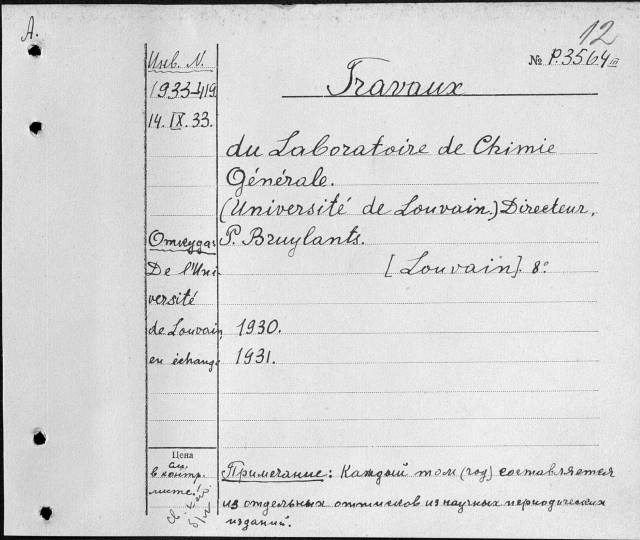 A.
12
№ P.3564 III
Инв. N.
1933-419
14. IX. 33.
Travaux
du Laboratoire de Chimie
Générale.
(Université de Louvain.) Directeur,
P. Bruylants.
[Louvain]. 8°
Откуда
De l'Uni
versité
de Louvain
en échange
1930.
1931.
Цена
см.
в контр.
листе.
Примечание: Каждый том (год) составляется
из отдельных оттисков из научных периодических
изданий.